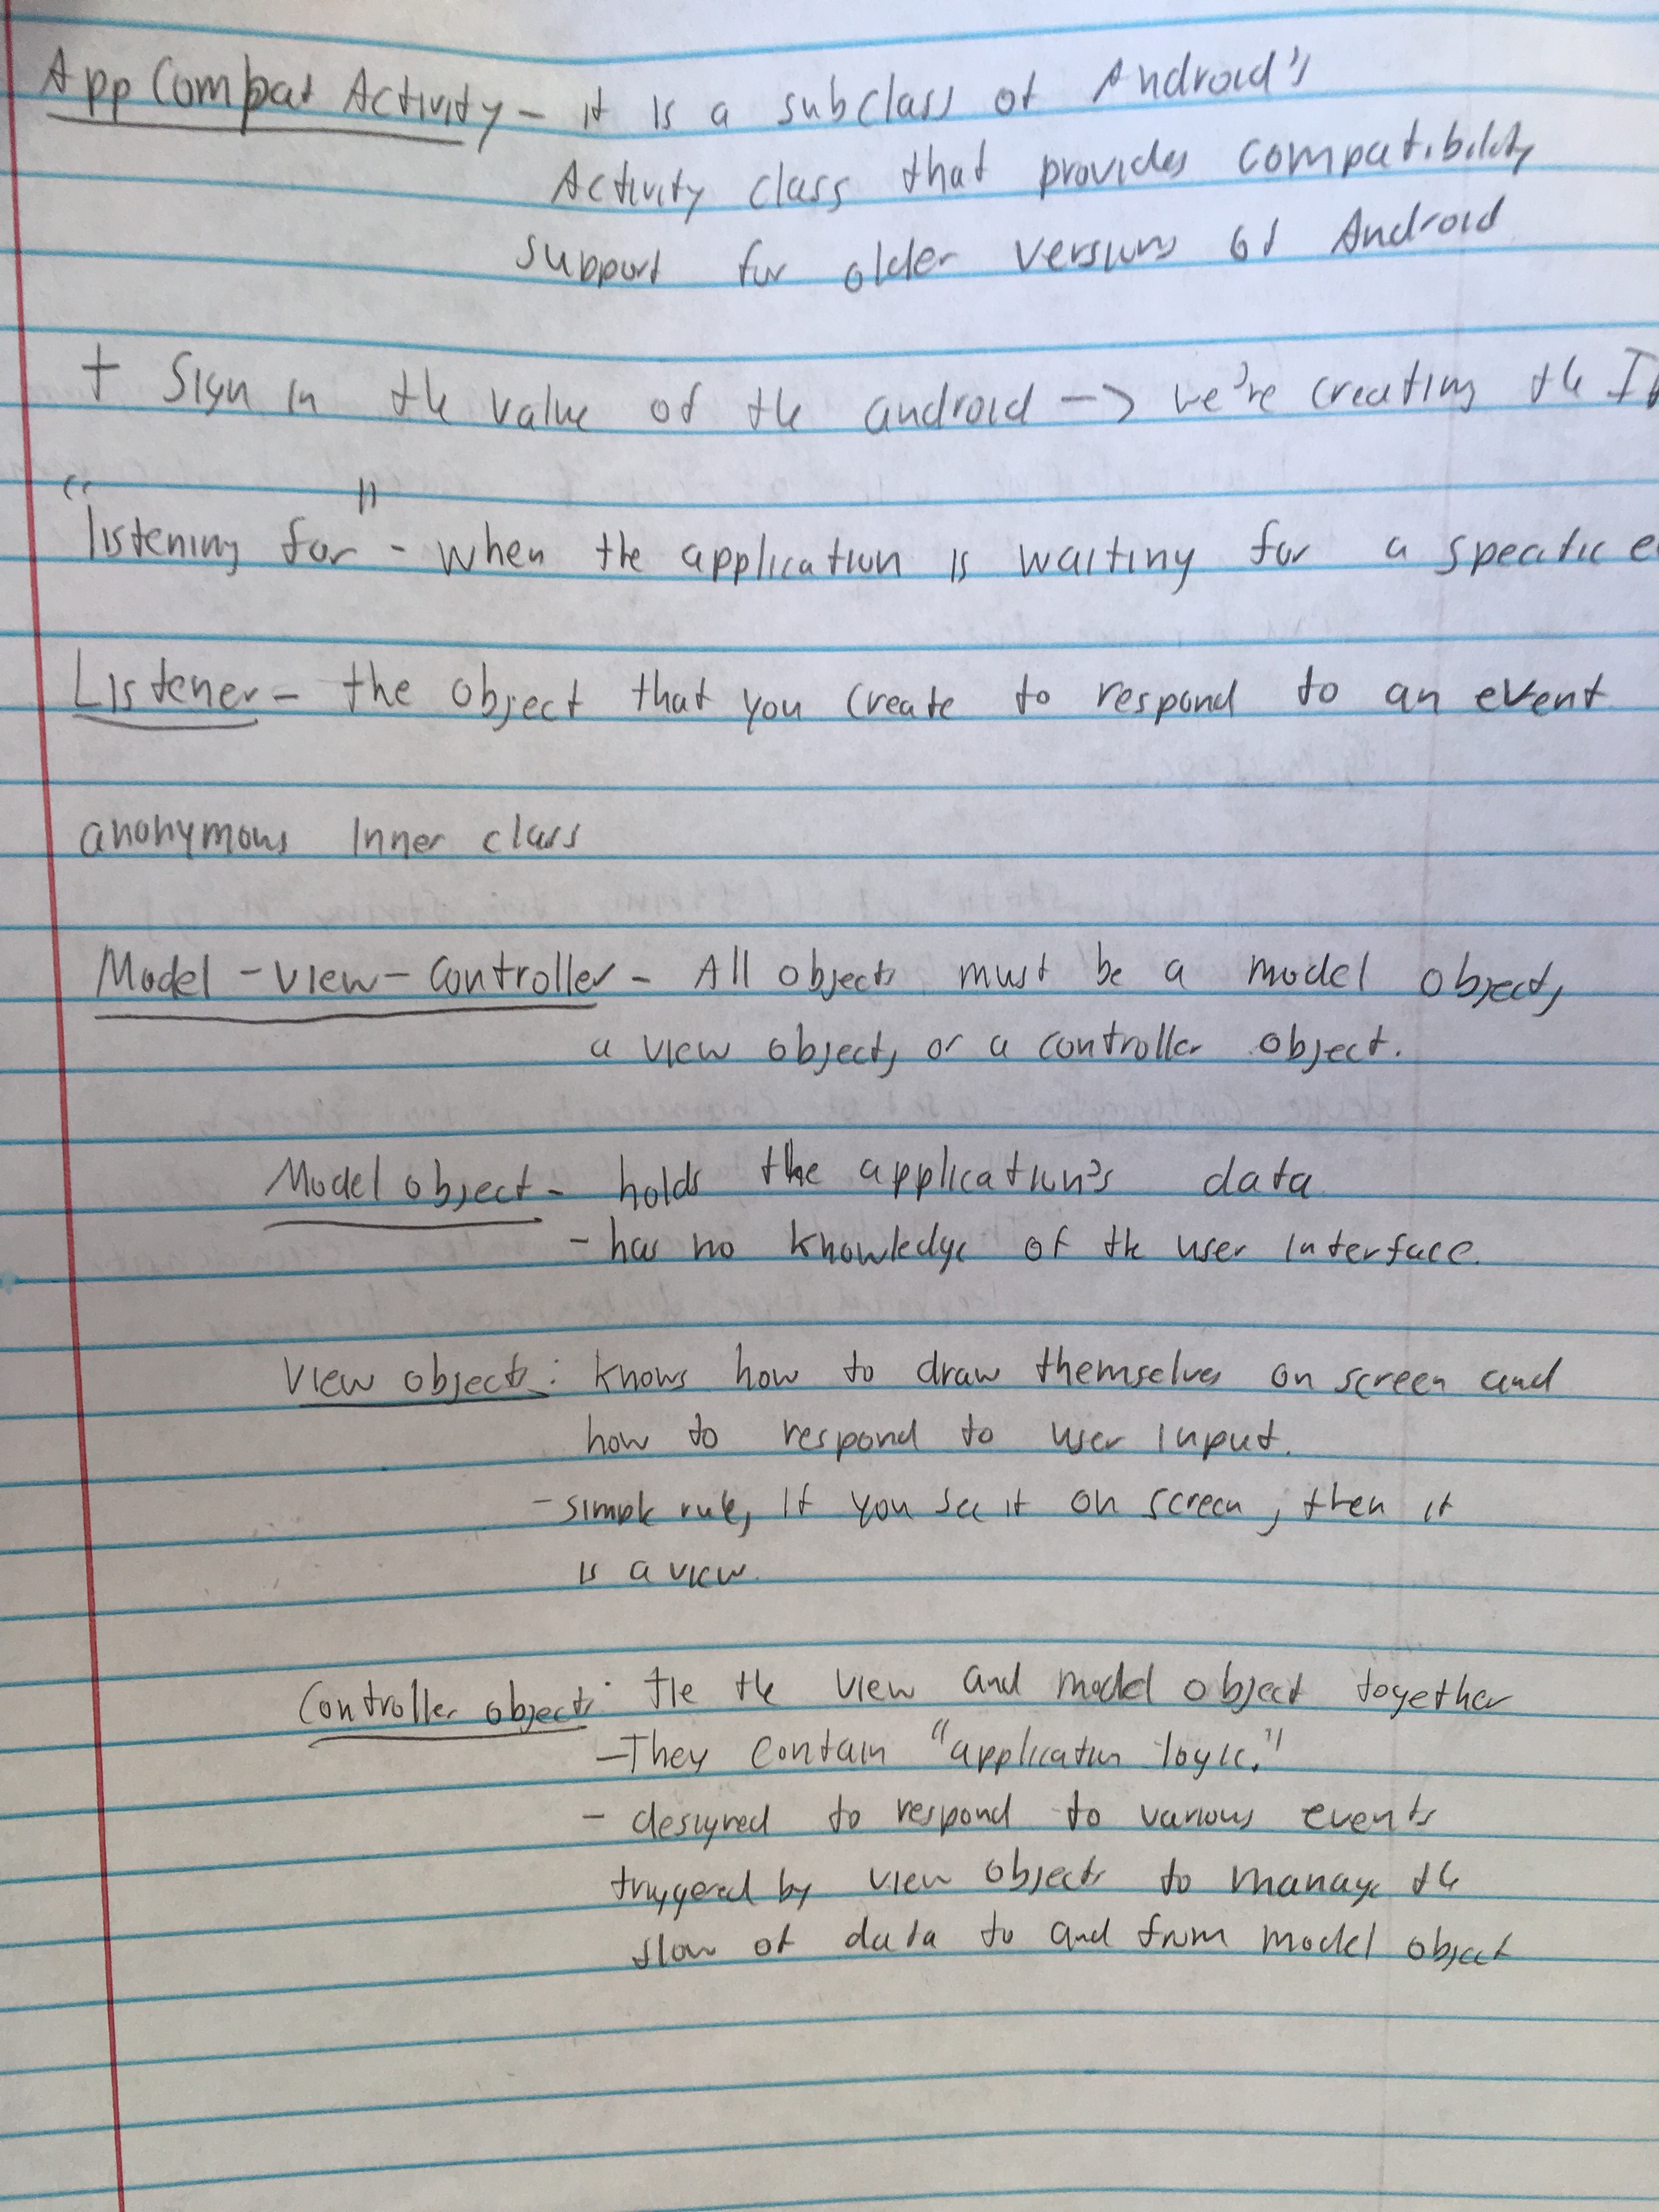 App Compat Activity - it is a subclass of Android's
Activity class that provides compatibility
support for older versions of Android
+ Sign in the value of the android -> we're creating the
"listening for" - when the application is waiting for a specific
Listener - the object that you create to respond to an event
anonymous inner class
Model-View-Controller - All objects must be a model object,
a view object, or a controller object.
Model object - holds the application's data
- has no knowledge of the user interface.
View objects: knows how to draw themselves on screen and
how to respond to user input.
- simple rule, if you see it on screen, then it
is a view.
Controller objects: tie the view and model object together
- They contain "application logic."
- designed to respond to various events
triggered by view objects to manage the
flow of data to and from model object